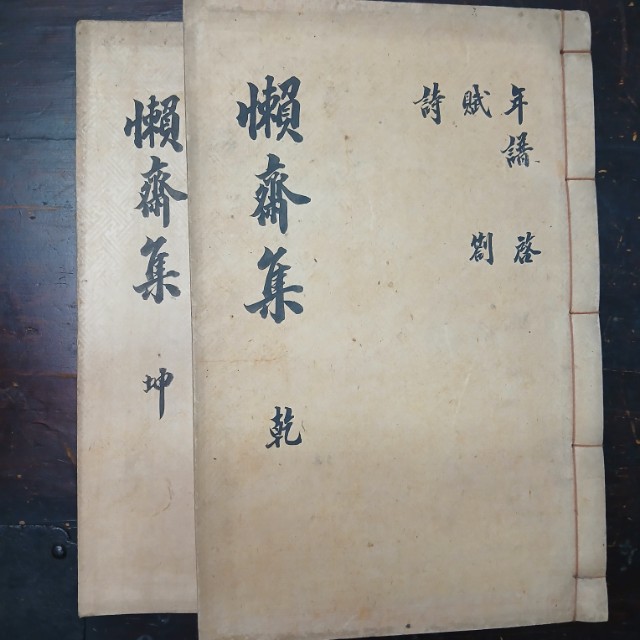 年譜 啓
賦 劄
詩
懶齋集 乾
懶齋集 坤